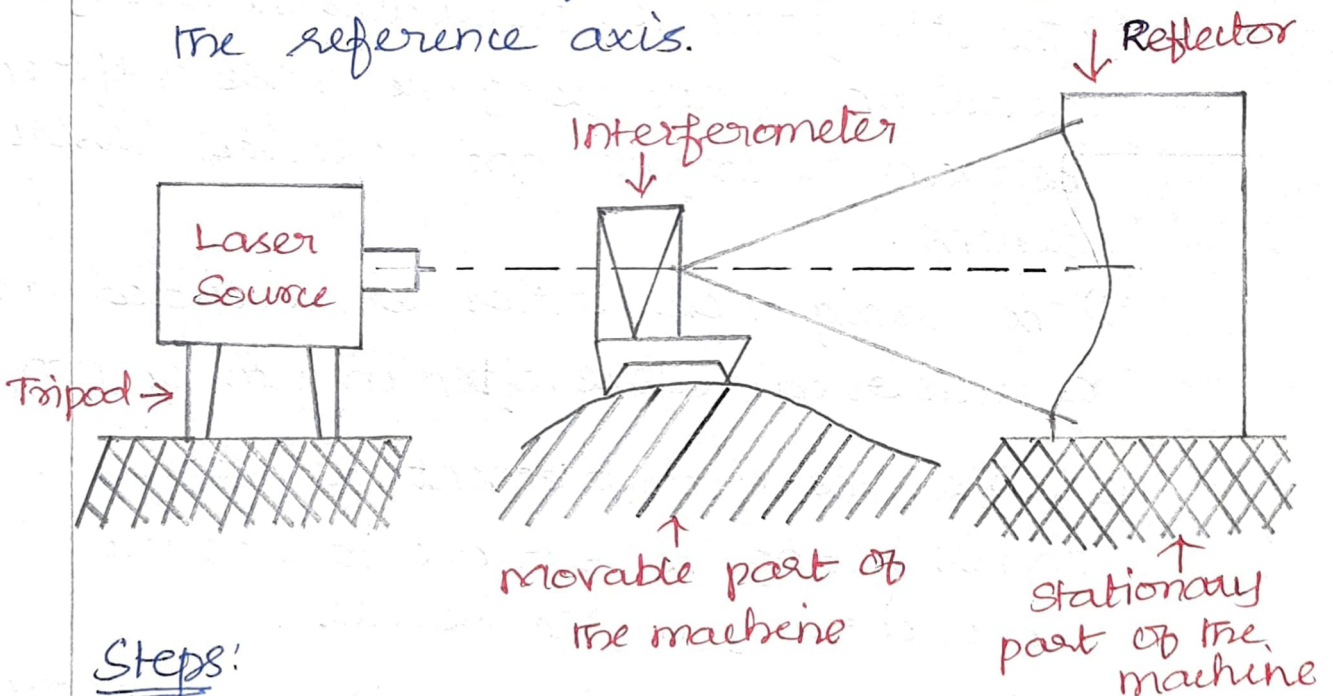 the reference axis.
Reflector
Interferometer
Laser
Source
Tripod
Movable part of
the machine
Stationary
part of the
machine
Steps: